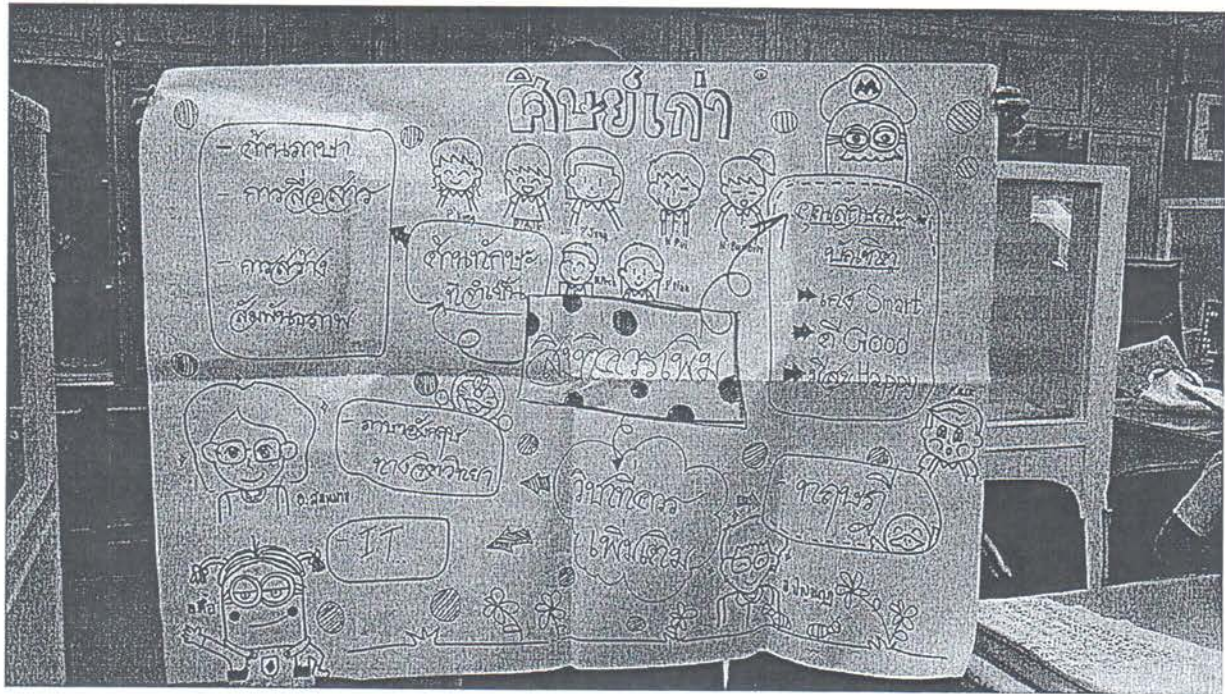 ศิษย์เก่า
M
- ด้านภาษา
- การสื่อสาร
- การสร้าง
สัมพันธภาพ
ด้านทักษะ
คุณลักษณะ
บัณฑิต
เก่ง Smart
ดี Good
มีสุข Happy
สิ่งที่ควรเพิ่ม
- ภาษาอังกฤษ
ทางจิตวิทยา
- IT
วิชาที่ควร
เพิ่มเติม
- ทฤษฎี